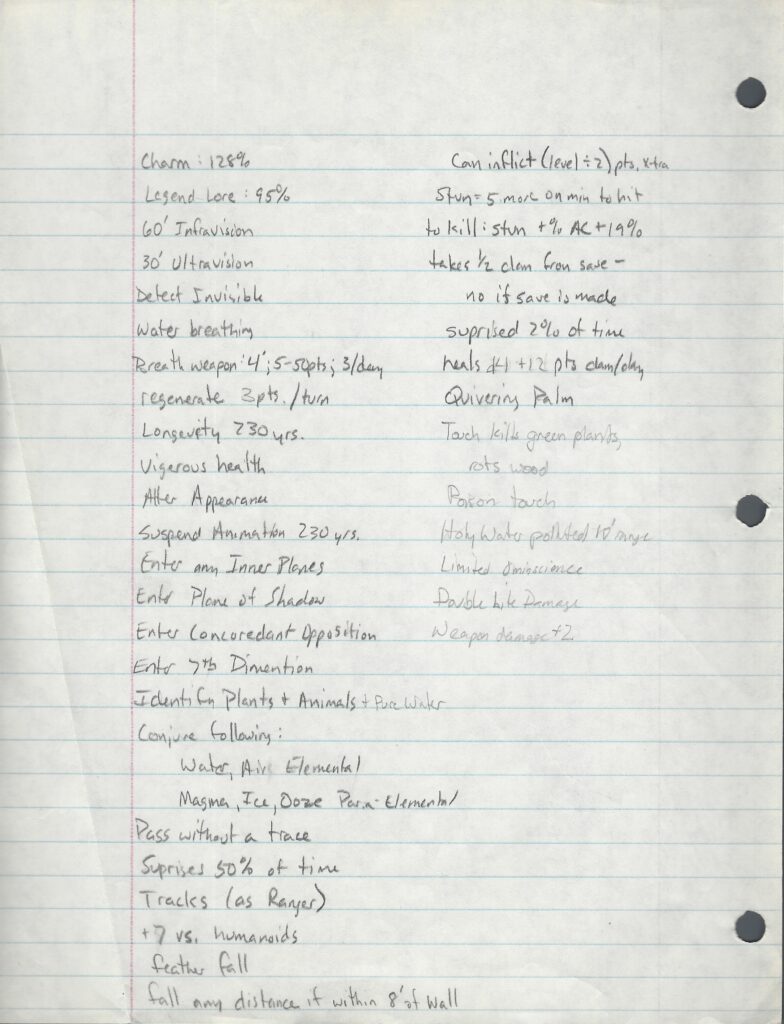 Charm : 128%
Legend Lore : 95%
60' Infravision
30' Ultravision
Detect Invisible
Water breathing
Breath weapon : 4'; 5-50pts; 3/day
regenerate 3pts. /turn
Longevity 230 yrs.
Vigerous health
Alter Appearance
Suspend Animation 230 yrs.
Enter any Inner Planes
Enter Plane of Shadow
Enter Concoredant Opposition
Enter 7th Dimention
Identify Plants + Animals + Pure Water
Conjure following :
Water, Air Elemental
Magma, Ice, Ooze Para-Elemental
Pass without a trace
Suprises 50% of time
Tracks (as Ranger)
+7 vs. humanoids
feather fall
fall any distance if within 8' of wall
Can inflict (level ÷ 2) pts. x-tra
Stun = 5 more on min to hit
to kill : stun + % AC + 19%
takes 1/2 dam from save -
no if save is made
suprised 2% of time
heals +12 pts dam/day
Quivering Palm
Touch kills green plants,
rots wood
Poison touch
Holy Water polluted 10' range
Limited Omniscience
Double Damage
Weapon damage +2